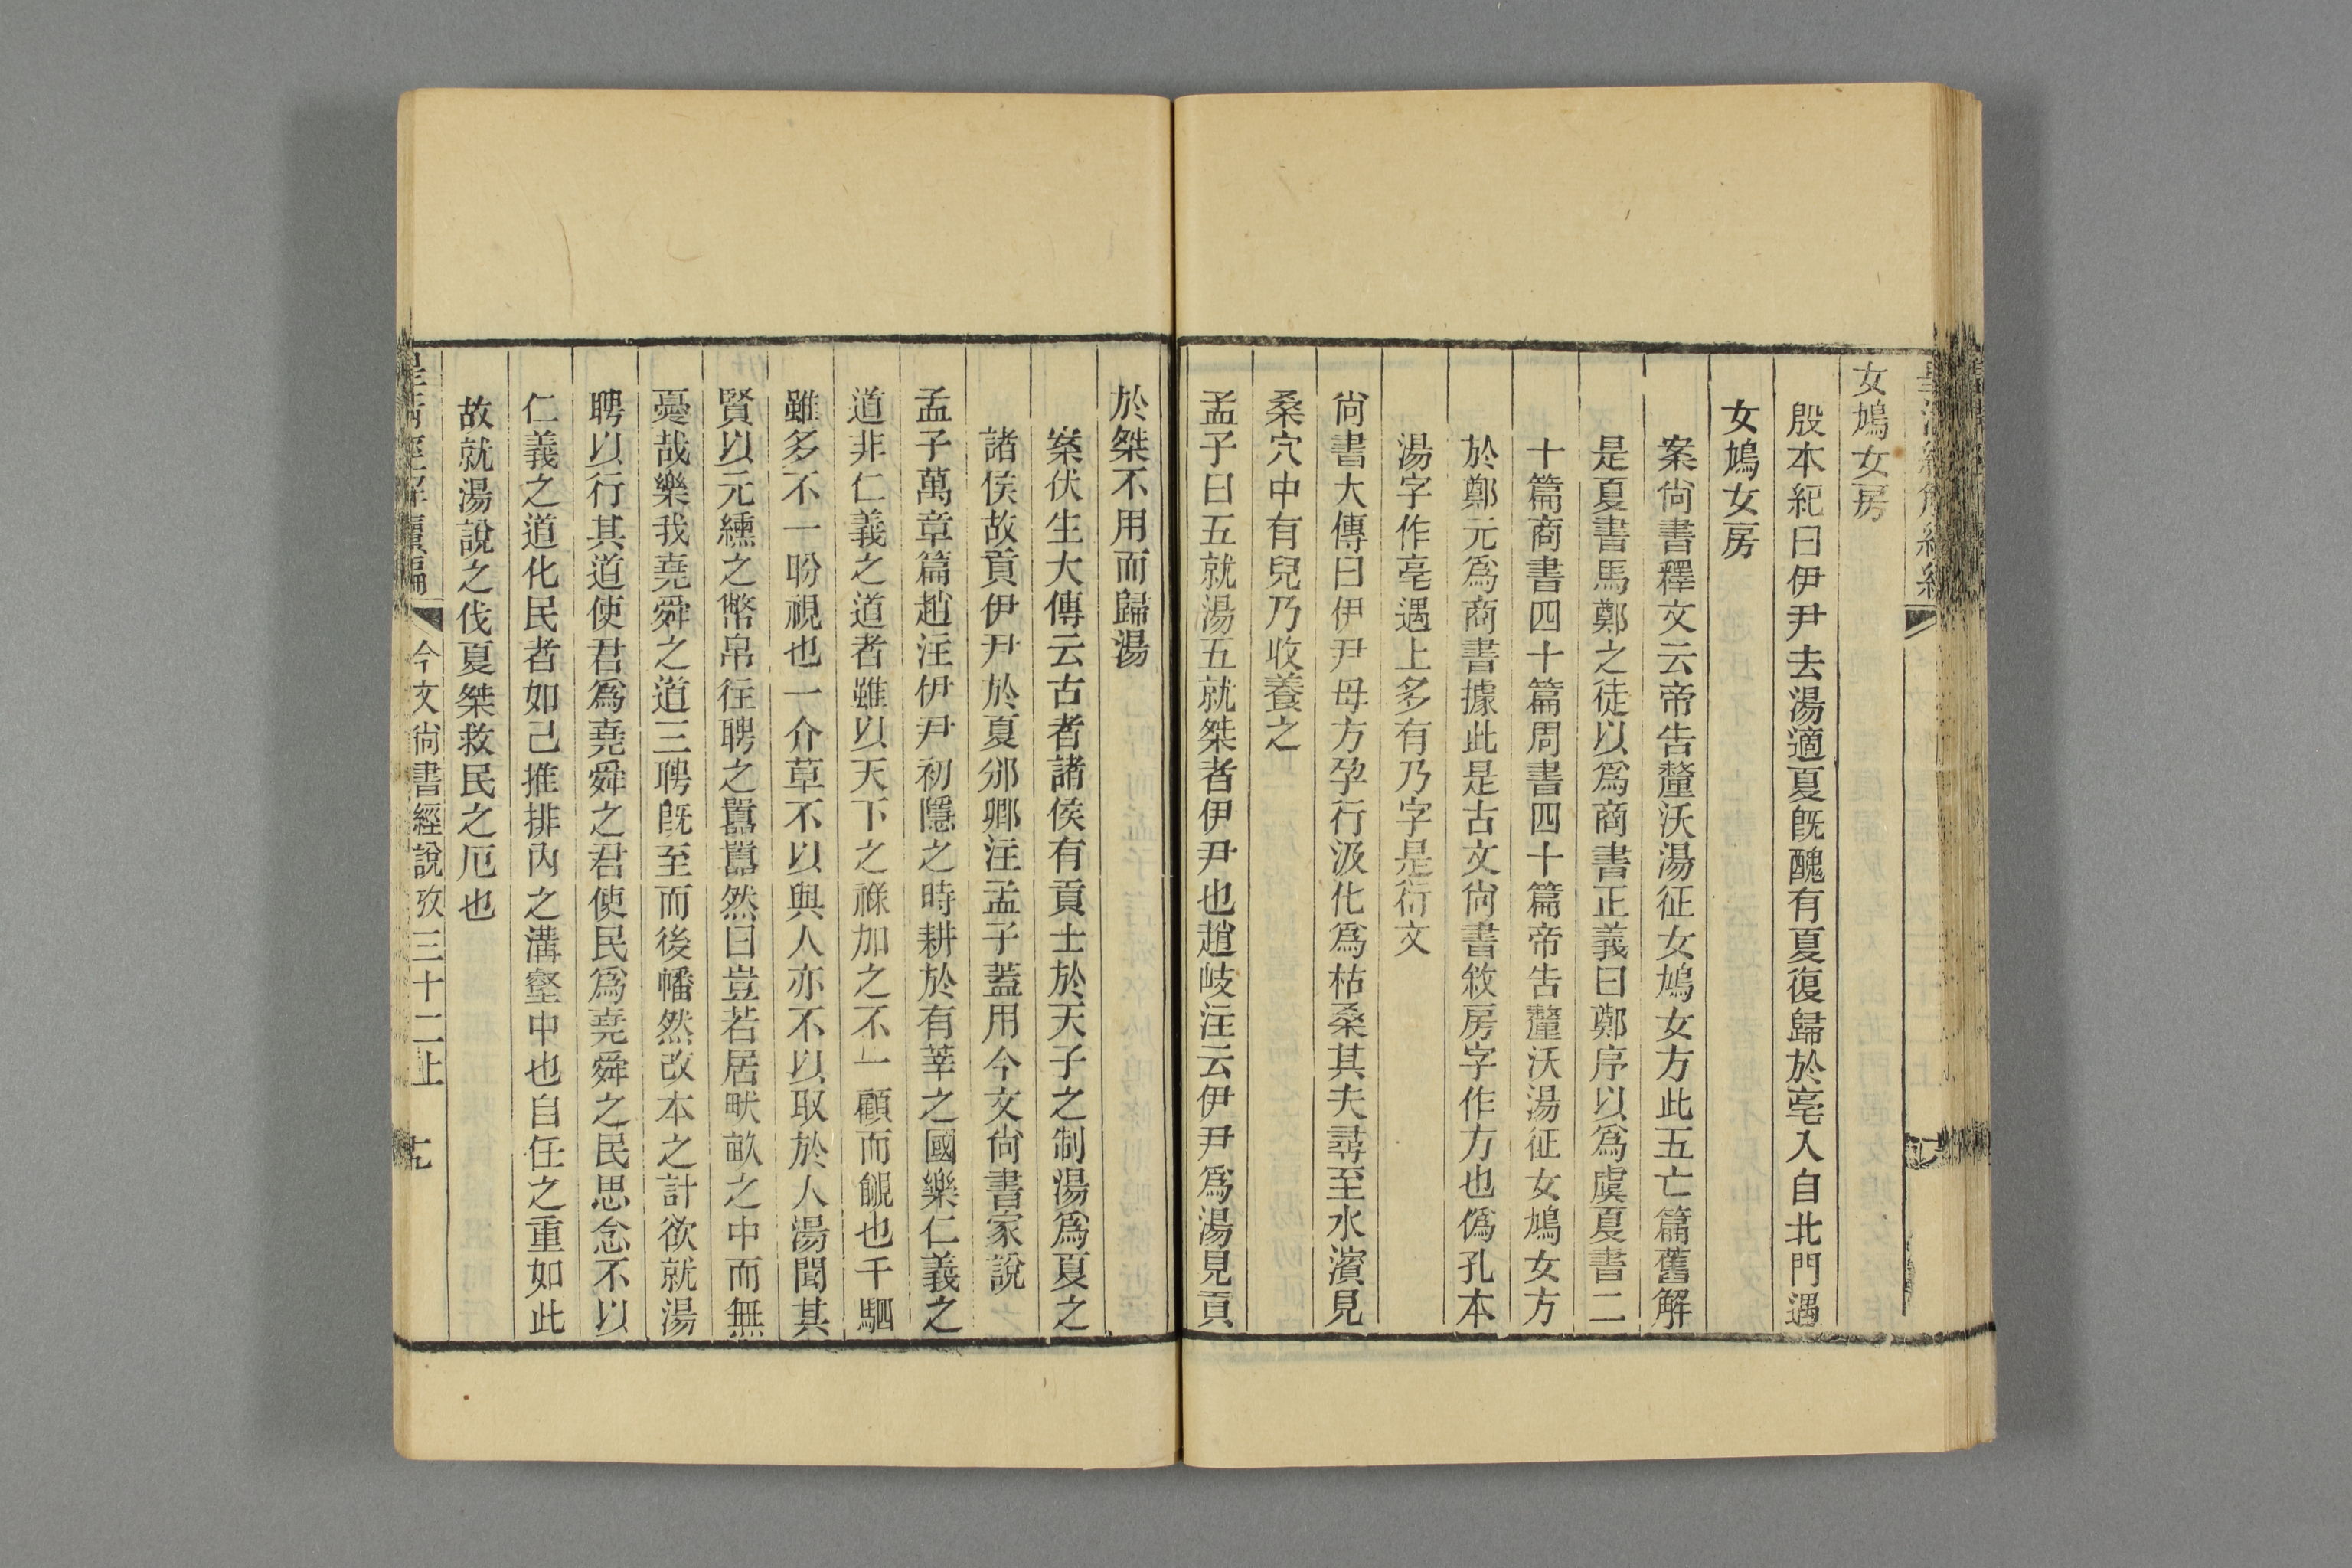 女鳩女房
殷本紀曰伊尹去湯適夏旣醜有夏復歸於亳入自北門遇
女鳩女房
案尙書釋文云帝告釐沃湯征女鳩女方此五亡篇舊解
是夏書馬鄭之徒以爲商書正義曰鄭序以爲虞夏書二
十篇商書四十篇周書四十篇帝告釐沃湯征女鳩女方
於鄭元爲商書據此是古文尙書敘房字作方也僞孔本
湯字作亳遇上多有乃字是衍文
尙書大傳曰伊尹母方孕行汲化爲枯桑其夫尋至水濱見
桑穴中有兒乃收養之
孟子曰五就湯五就桀者伊尹也趙岐注云伊尹爲湯見貢
於桀不用而歸湯
案伏生大傳云古者諸侯有貢士於天子之制湯爲夏之
諸侯故貢伊尹於夏邠卿注孟子蓋用今文尙書家說
孟子萬章篇趙注伊尹初隱之時耕於有莘之國樂仁義之
道非仁義之道者雖以天下之祿加之不一顧而覦也千駟
雖多不一盼視也一介草不以與人亦不以取於人湯聞其
賢以元纁之幣帛往聘之囂囂然曰豈若居畎畝之中而無
憂哉樂我堯舜之道三聘旣至而後幡然改本之計欲就湯
聘以行其道使君爲堯舜之君使民爲堯舜之民思念不以
仁義之道化民者如己推排內之溝壑中也自任之重如此
故就湯說之伐夏桀救民之厄也
皇清經解續編 今文尙書經說攷三十二上